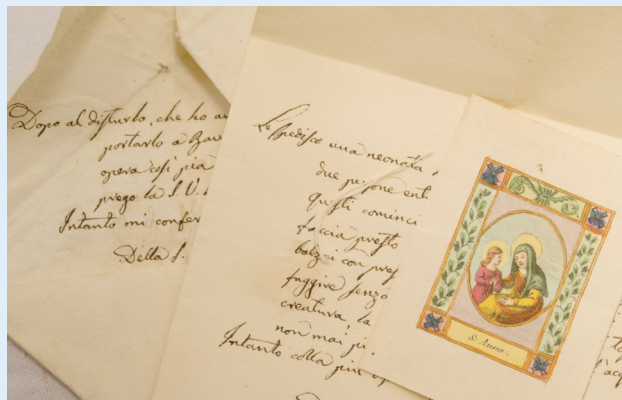 Dopo al disturbo, che ho a
portarlo a
opera così pia
prego la S. V.
Intanto mi confer
Della S.
Le spedisco una neonata
due
questi cominci
faccia presto
con pres
fuggire senza
creatura, la
non mai pi
Intanto colla più
D
S. Anna.
l'acq